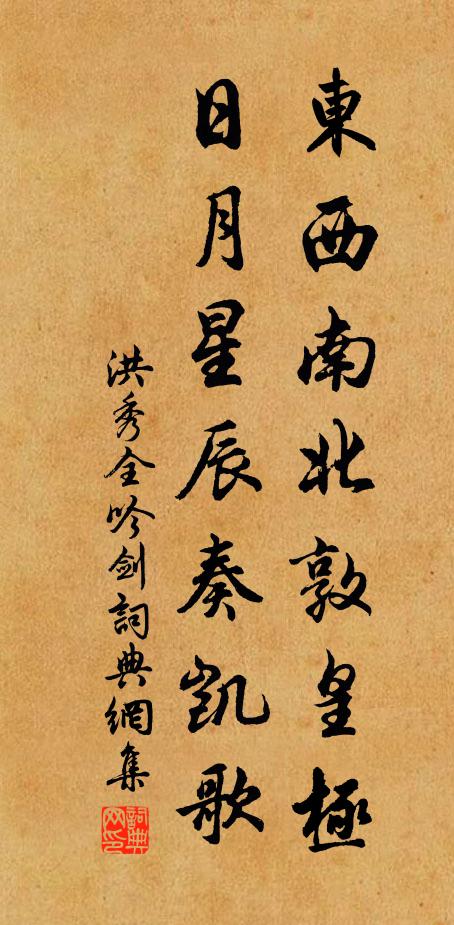 東西南北敦皇極
日月星辰奏凱歌
洪秀全吟劍詞典網集
詞典网印